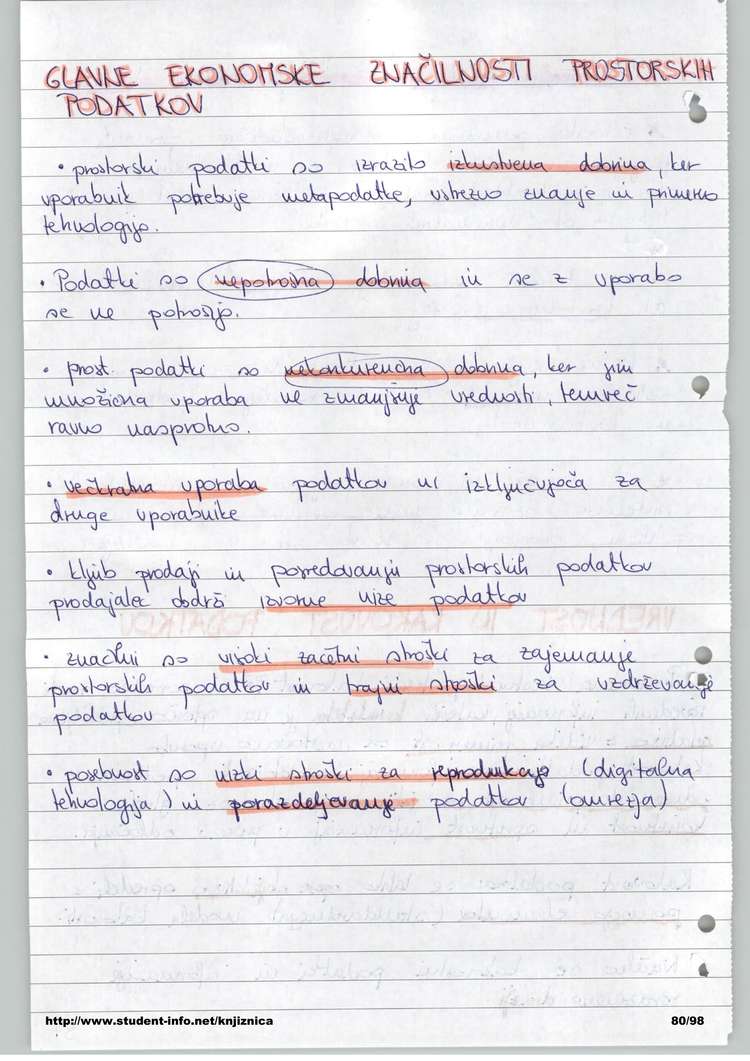 GLAVNE EKONOMSKE ZNAČILNOSTI PROSTORSKIH
PODATKOV
• prostorski podatki so izrazito izkustvena dobrina, ker
uporabnik potrebuje metapodatke, ustrezno znanje in primerno
tehnologijo.
• Podatki so nepotrošna dobrina in se z uporabo
se ne potrošijo.
• prost. podatki so nekonkurenčna dobrina, ker jim
množična uporaba ne zmanjšuje vrednosti, temveč
ravno nasprotno.
• večkratna uporaba podatkov ni izključujoča za
druge uporabnike
• kljub prodaji in posredovanju prostorskih podatkov
prodajalec obdrži izvorne nize podatkov
• značilni so visoki začetni stroški za zajemanje
prostorskih podatkov in trajni stroški za vzdrževanje
podatkov
• posebnost so nizki stroški za reprodukcijo (digitalna
tehnologija) in porazdeljevanje podatkov (omrežja)
http://www.student-info.net/knjiznica 80/98